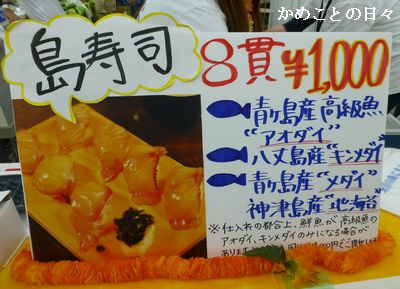 かめことの日々
島寿司
8貫¥1,000
青ヶ島産高級魚
"アオダイ"
八丈島産"キンメダイ"
青ヶ島産"メダイ"
神津島産"地海苔"
※仕入れの都合上、鮮魚が高級魚の
アオダイ、キンメダイのみになる場合が